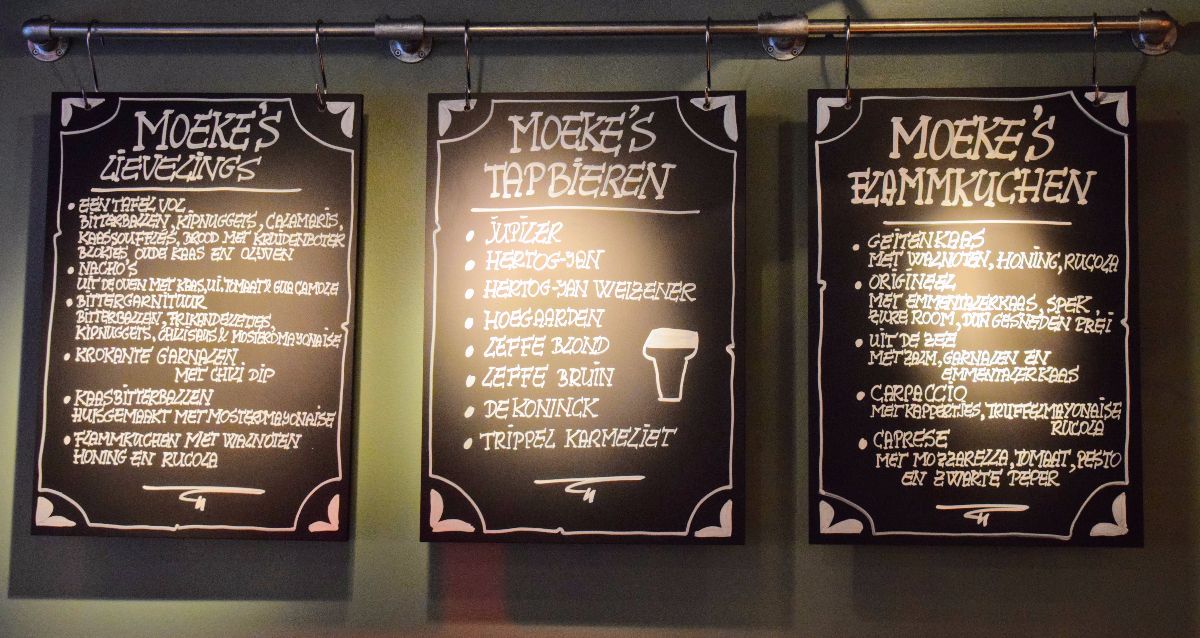 MOEKE'S
LIEVELINGS
• EEN TAFEL VOL
BITTERBALLEN, KIPNUGGETS, CALAMARIS,
KAASSOUFFLES, BROOD MET KRUIDENBOTER
BLOKJES OUDE KAAS EN OLIJVEN
• NACHO'S
UIT DE OVEN MET KAAS, UI, TOMAAT & GUACAMOLE
• BITTERGARNITUUR
BITTERBALLEN, FRIKANDELLETJES,
KIPNUGGETS, CHILISAUS & MOSTERDMAYONAISE
• KROKANTE GARNALEN
MET CHILI DIP
• KAASBITTERBALLEN
HUISGEMAAKT MET MOSTERDMAYONAISE
• FLAMMKUCHEN MET WALNOTEN
HONING EN RUCOLA
MOEKE'S
TAPBIEREN
• JUPILER
• HERTOG-JAN
• HERTOG-JAN WEIZENER
• HOEGAARDEN
• LEFFE BLOND
• LEFFE BRUIN
• DE KONINCK
• TRIPPEL KARMELIET
MOEKE'S
FLAMMKUCHEN
• GEITENKAAS
MET WALNOTEN, HONING, RUCOLA
• ORIGINEEL
MET EMMENTALERKAAS, SPEK,
ZURE ROOM, DUN GESNEDEN PREI
• UIT DE ZEE
MET ZALM, GARNALEN EN
EMMENTALERKAAS
• CARPACCIO
MET KAPPERTJES, TRUFFELMAYONAISE
RUCOLA
• CAPRESE
MET MOZZARELLA, TOMAAT, PESTO
EN ZWARTE PEPER